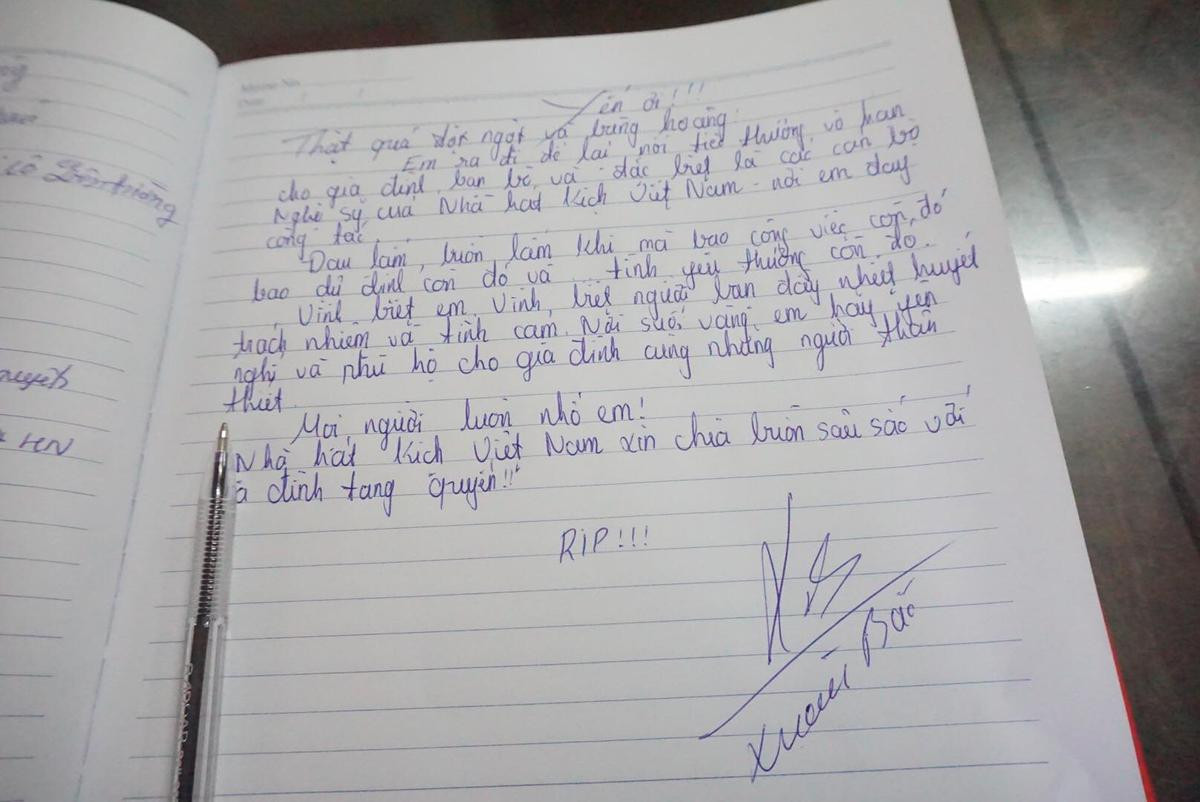 Yến ơi!!!
Thật quá đột ngột và bàng hoàng
Em ra đi để lại nỗi tiếc thương vô hạn
cho gia đình, bạn bè, và đặc biệt là các cán bộ
Nghệ sỹ của Nhà hát Kịch Việt Nam - nơi em đang
công tác.
Đau lắm, buồn lắm khi mà bao công việc còn đó
bao dự định còn đó và tình yêu thương còn đó.
Vĩnh biệt em, Vĩnh biệt người bạn đầy nhiệt huyết
trách nhiệm và tình cảm. Nơi suối vàng em hãy yên
nghỉ và phù hộ cho gia đình cùng những người thân
thiết.
Mọi người luôn nhớ em!
Nhà hát Kịch Việt Nam xin chia buồn sâu sắc với
à đình tang quyến!!
RIP!!!
Xuân Bắc
cô
HN